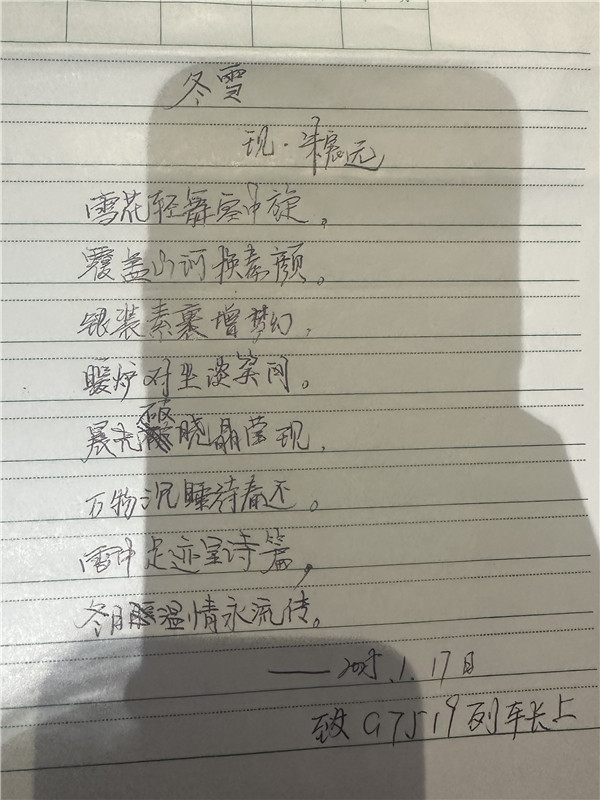 冬雪
现·朱宸沅
雪花轻舞空中旋,
覆盖山河换素颜。
银装素裹增梦幻,
暖炉对坐谈笑间。
晨光破晓晶莹现,
万物沉睡待春还。
雪中足迹呈诗篇,
冬日温情永流传。
——2025.1.17日
致G7519列车长上